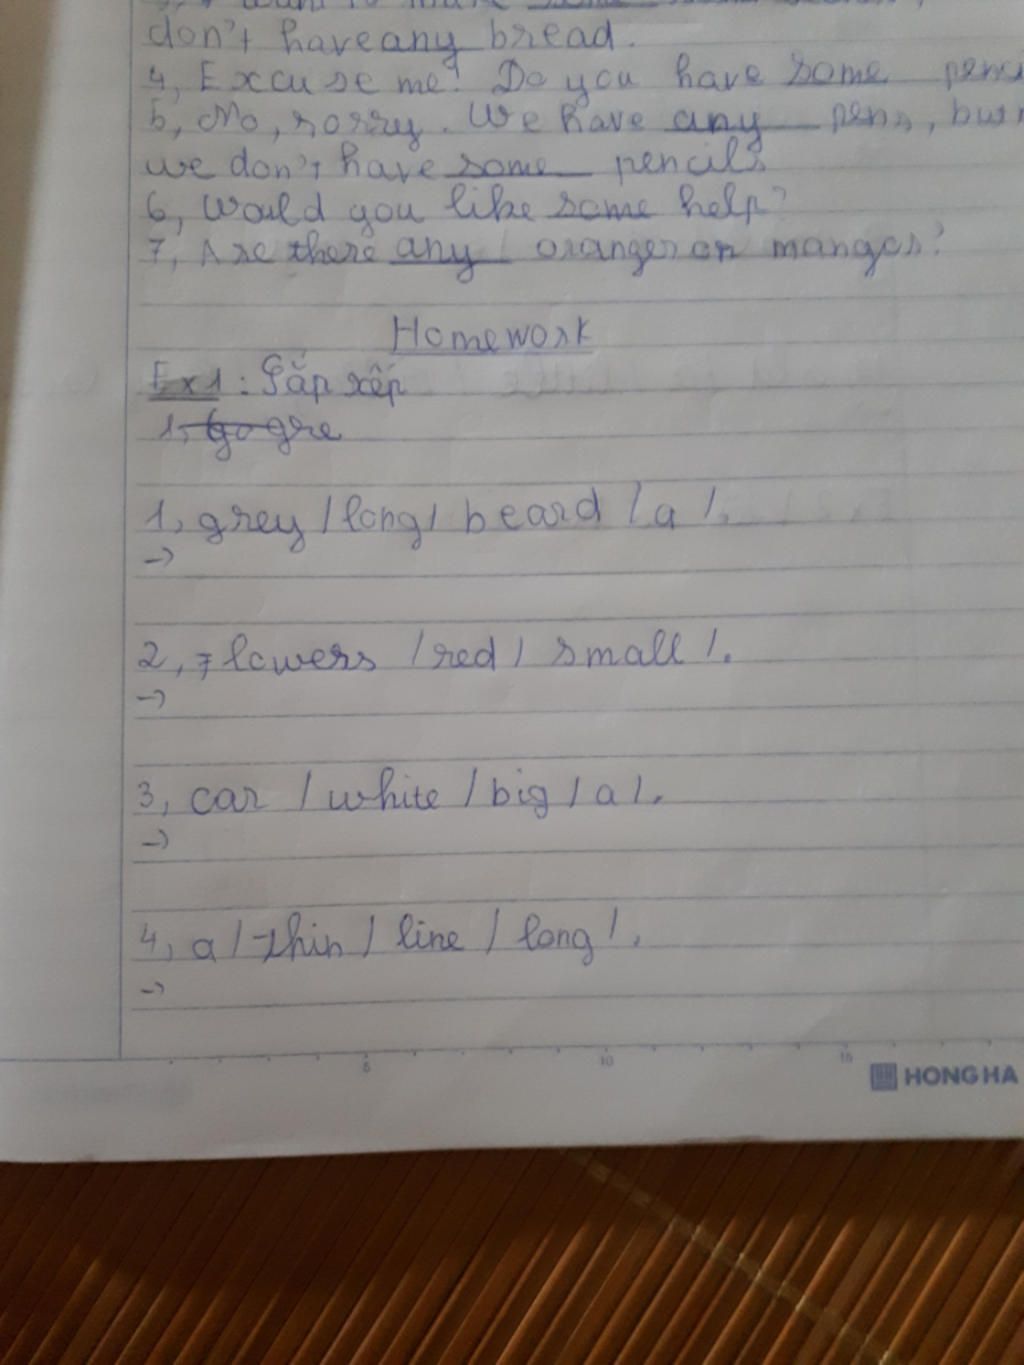 don't have any bread.
4, Excuse me! Do you have some penci
5, No, sorry. We have any pens, but
we don't have some pencils
6, Would you like some help?
7, Are there any oranges or mangos?
Homework
Ex1: Sắp xếp
1, go gre
1, grey / long / beard / a /.
→
2, flowers / red / small /.
→
3, car / white / big / a /.
→
4, a / thin / line / long /.
→
5 10 15
HONG HA